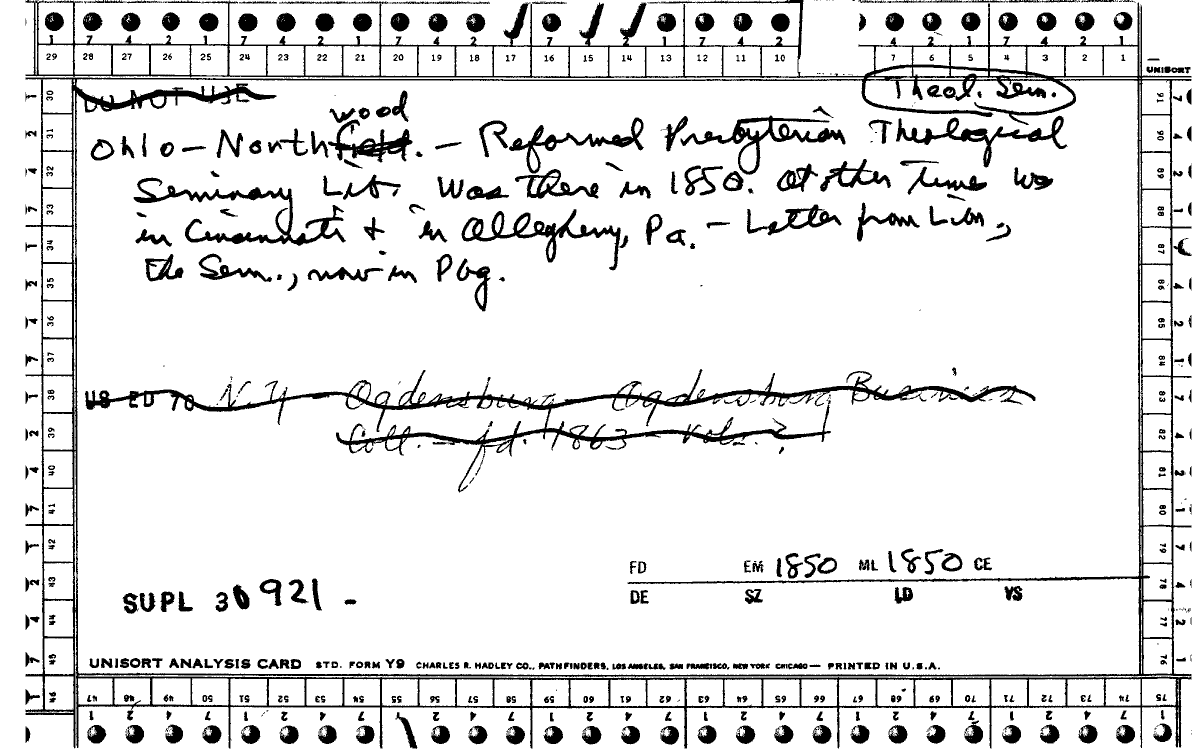 1 7 4 2 1 7 4 2 1 7 4 2 1 7 4 2 1 7 4 2 1 7 4 2 1
29 28 27 26 25 24 23 22 21 20 19 18 17 16 15 14 13 12 11 10 7 6 5 4 3 2 1
UNISORT
DO NOT USE
Theol. Sem.
wood
Ohio - Northfield. - Reformed Presbyterian Theological
Seminary Lib. Was there in 1850. At other times was
in Cincinnati & in Allegheny, Pa. - Letter from Libn,
the Sem., now in Pbg.
US ED 70 N Y - Ogdensburg - Ogdensburg Business
Coll. - fd. 1863 - vols. ?
FD EM 1850 ML 1850 CE
DE SZ LD VS
SUPL 30921 -
UNISORT ANALYSIS CARD STD. FORM Y9 CHARLES R. HADLEY CO., PATHFINDERS, LOS ANGELES, SAN FRANCISCO, NEW YORK CHICAGO — PRINTED IN U.S.A.
47 48 49 50 51 52 53 54 55 56 57 58 59 60 61 62 63 64 65 66 67 68 69 70 71 72 73 74 75